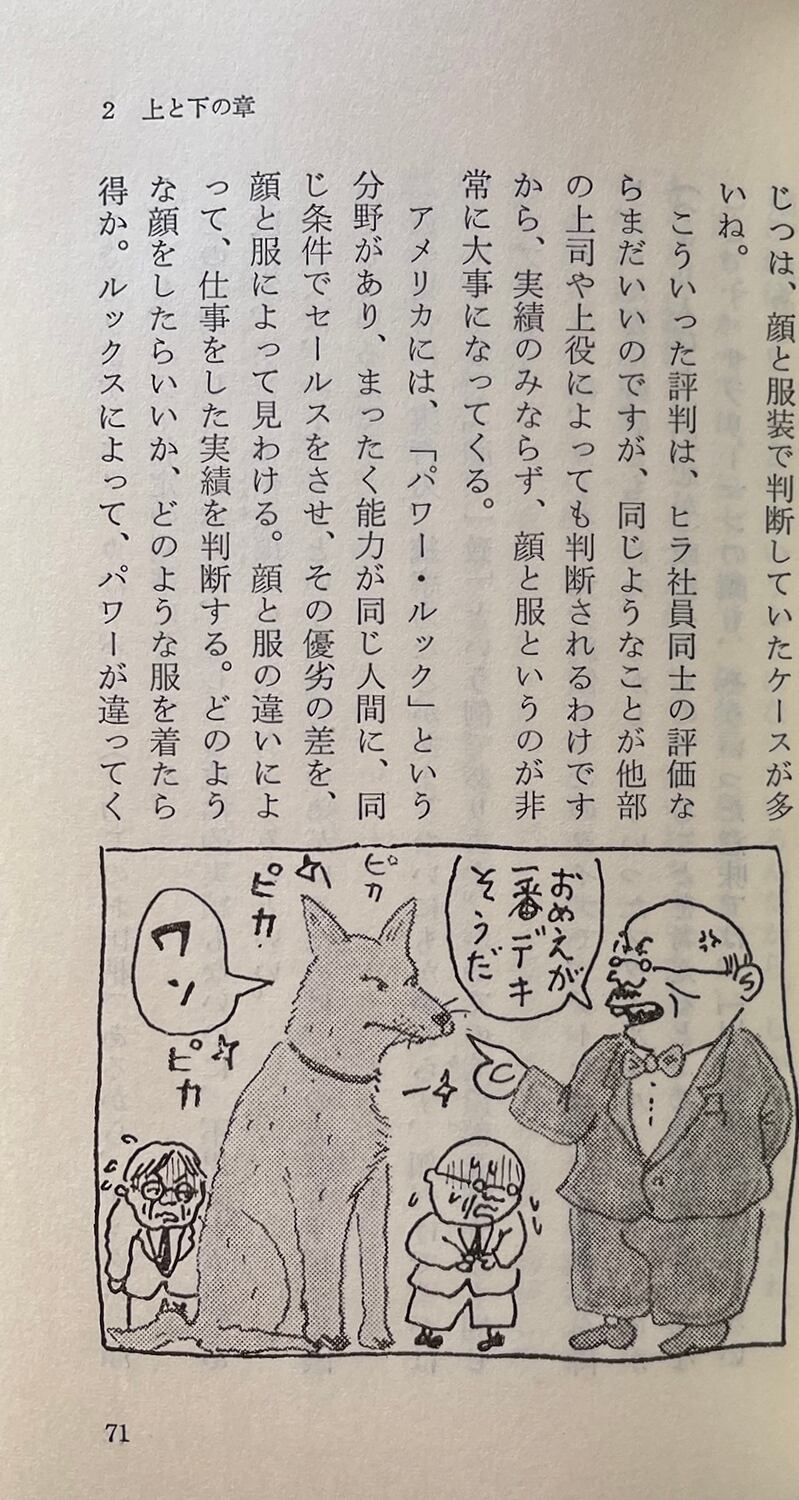 2 上と下の章
じつは、顔と服装で判断していたケースが多
いね。
こういった評判は、ヒラ社員同士の評価な
らまだいいのですが、同じようなことが他部
の上司や上役によっても判断されるわけです
から、実績のみならず、顔と服というのが非
常に大事になってくる。
アメリカには、「パワー・ルック」という
分野があり、まったく能力が同じ人間に、同
じ条件でセールスをさせ、その優劣の差を、
顔と服によって見わける。顔と服の違いによ
って、仕事をした実績を判断する。どのよう
な顔をしたらいいか、どのような服を着たら
得か。ルックスによって、パワーが違ってく
おめえが
一番デキ
そうだ
ピカ
ピカ
ワン
ピカ
71